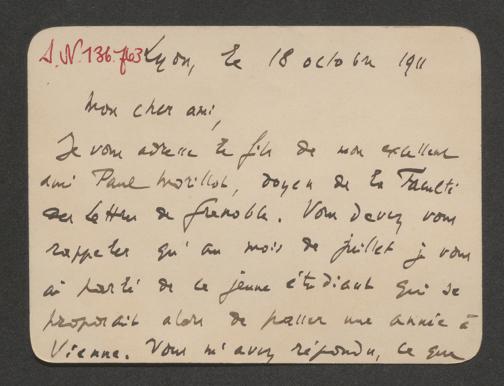 I.N. 136.763 Lyon, le 18 octobre 1911
Mon cher ami,
Je vous adresse le fils de mon excellent
ami Paul Morillot, doyen de la Faculté
des Lettres de Grenoble. Vous devez vous
rappeler qu'au mois de juillet je vous
ai parlé de ce jeune étudiant qui se
proposait alors de passer une année à
Vienne. Vous m'avez répondu, ce que